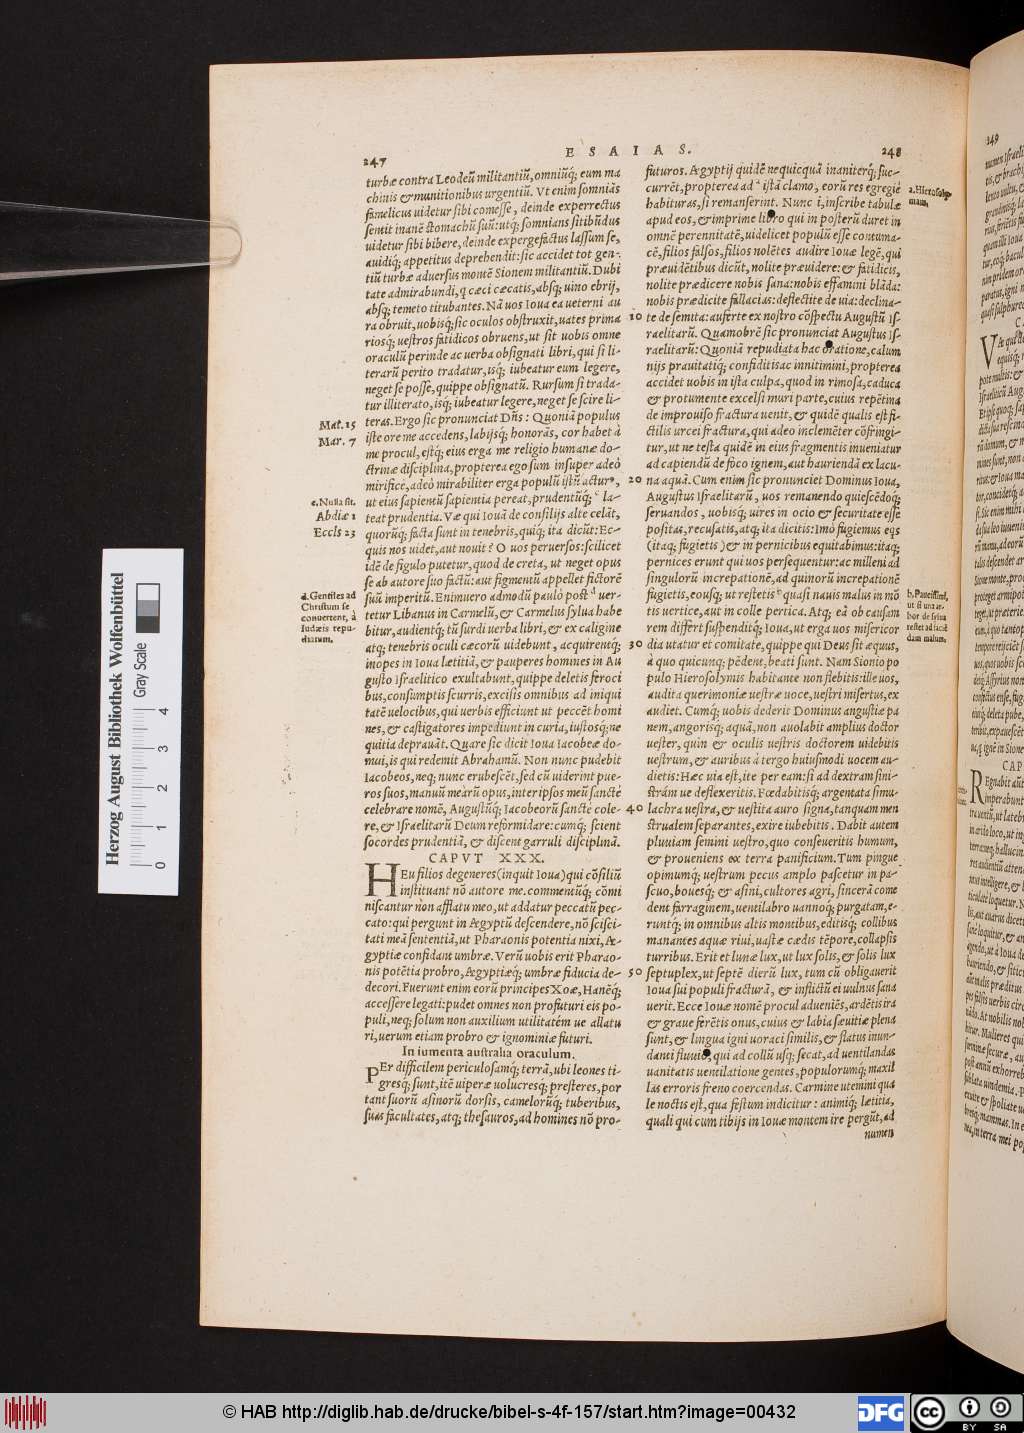 247
E S A I A S.
248
turbæ contra Leodeũ militantiũ, omniũq́; eum ma
chinis & munitionibus urgentiũ. Vt enim somniãs
famelicus uidetur sibi comesse, deinde experrectus
sentit inanẽ stomachũ suũ: utq́; somnians sitibũdus
uidetur sibi bibere, deinde expergefactus lassum se,
auidiq́; appetitus deprehendit: sic accidet tot gen-
tiũ turbæ aduersus montẽ Sionem militantiũ. Dubi
tate admirabundi, q cæci cæcatis, absq́; uino ebrij,
absq́; temeto titubantes. Nã uos Ioua ea ueterni au
ra obruit, uobisq́; sic oculos obstruxit, uates prima
riosq́; uestros fatidicos obruens, ut sit uobis omne
oraculũ perinde ac uerba obsignati libri, qui si li-
terarũ perito tradatur, isq́; iubeatur eum legere,
neget se posse, quippe obsignatũ. Rursum si trada-
tur illiterato, isq́; iubeatur legere, neget se scire li-
teras. Ergo sic pronunciat Dñs: Quoniã populus
iste ore me accedens, labijsq́; honorãs, cor habet à
me procul, estq́; eius erga me religio humanæ do-
ctrinæ disciplina, propterea ego sum insuper adeò
mirificè, adeò mirabiliter erga populũ istũ acturꝰ,
ut eius sapientũ sapientia pereat, prudentũq́; c la-
teat prudentia. Væ qui Iouã de consilijs alte celãt,
quorũq́; facta sunt in tenebris, quiq́; ita dicũt: Ec-
quis nos uidet, aut nouit? O uos peruersos: scilicet
idẽ de figulo putetur, quod de creta, ut neget opus
se ab autore suo factũ: aut figmentũ appellet fictorẽ
suũ imperitũ. Enimuero admodũ paulò post d uer-
tetur Libanus in Carmelũ, & Carmelus sylua habe
bitur, audientq́; tũ surdi uerba libri, & ex caligine
atq́; tenebris oculi cæcorũ uidebunt, acquirentq́;
inopes in Ioua lætitiã, & pauperes homines in Au
gusto Israelitico exultabunt, quippe deletis feroci
bus, consumptis scurris, excisis omnibus ad iniqui
tatẽ uelocibus, qui uerbis efficiunt ut peccẽt homi
nes, & castigatores impediunt in curia, iustosq́; ne
quitia deprauãt. Quare sic dicit Ioua Iacobeæ do-
mui, is qui redemit Abrahamũ. Non nunc pudebit
Iacobeos, neq́; nunc erubescẽt, sed cũ uiderint pue-
ros suos, manuũ mearũ opus, inter ipsos meũ sanctè
celebrare nomẽ, Augustũq́; Iacobeorũ sanctè cole-
re, & Israelitarũ Deum reformidare: cumq́; scient
socordes prudentiã, & discent garruli disciplinã.
CAPVT XXX.
HEu filios degeneres (inquit Ioua) qui cõsiliũ
instituant nõ autore me, commentũq́; cõmi
niscantur non afflatu meo, ut addatur peccatũ pec-
cato: qui pergunt in Ægyptũ descendere, nõ scisci-
tati meã sententiã, ut Pharaonis potentia nixi, Æ-
gyptiæ confidant umbræ. Verũ uobis erit Pharao-
nis potẽtia probro, Ægyptiæq́; umbræ fiducia de-
decori. Fuerunt enim eorũ principes Xoæ, Hanẽq́;
accessere legati: pudet omnes non profuturi eis po-
puli, neq́; solum non auxilium utilitatém ue allatu
ri, uerum etiam probro & ignominiæ futuri.
In iumenta australia oraculum.
PEr difficilem periculosamq́; terrã, ubi leones ti-
gresq́; sunt, itẽ uiperæ uolucresq́; presteres, por
tant suorũ asinorũ dorsis, camelorũq́; tuberibus,
suas facultates, atq́; thesauros, ad homines nõ pro-
Mat. 15
Mar. 7
c. Nulla sit.
Abdiæ 1
Eccls 23
d. Gentiles ad
Christum se
conuertent, à
Iudæis repu-
diatum.
futuros. Ægyptij quidẽ nequicquã inaniterq́; suc-
currẽt, propterea ad a istã clamo, eorũ res egregiè
habituras, si remanserint. Nunc i, inscribe tabulæ
apud eos, & imprime libro qui in posterũ duret in
omnẽ perennitatẽ, uidelicet populũ esse contuma-
cẽ, filios falsos, filios nolẽtes audire Iouæ legẽ, qui
præuidẽtibus dicũt, nolite præuidere: & fatidicis,
nolite prædicere nobis sana: nobis effamini blãda:
nobis prædicite fallacias: deflectite de uia: declina-
10 te de semita: auferte ex nostro cõspectu Augustũ Is-
raelitarũ. Quamobrẽ sic pronunciat Augustus Is-
raelitarũ: Quoniã repudiata hac oratione, calum
nijs prauitatiq́; confiditis ac innitimini, propterea
accidet uobis in ista culpa, quod in rimosa, caduca
& protumente excelsi muri parte, cuius repẽtina
de improuiso fractura uenit, & quidẽ qualis est fi-
ctilis urcei fractura, qui adeo inclemẽter cõfringi-
tur, ut ne testa quidẽ in eius fragmentis inueniatur
ad capiendũ de foco ignem, aut hauriendã ex lacu-
20 na aquã. Cum enim sic pronunciet Dominus Ioua,
Augustus Israelitarũ, uos remanendo quiescẽdoq́;
seruandos, uobisq́; uires in ocio & securitate esse
positas, recusatis, atq́; ita dicitis: Imò fugiemus eqs
(itaq́; fugietis) & in pernicibus equitabimus: itaq́;
pernices erunt qui uos persequentur: ac milleni ad
singulorũ increpationẽ, ad quinorũ increpationẽ
fugietis, eousq́; ut restetis b quasi nauis malus in mõ
tis uertice, aut in colle pertica. Atq́; eã ob causam
rem differt suspenditq́; Ioua, ut erga uos misericor
30 dia utatur et comitate, quippe qui Deus sit æquus,
à quo quicunq́; pẽdent, beati sunt. Nam Sionio po
pulo Hierosolymis habitante non flebitis: ille uos,
audita querimoniæ uestræ uoce, uestri misertus, ex
audiet. Cumq́; uobis dederit Dominus angustiæ pa
nem, angorisq́; aquã, non auolabit amplius doctor
uester, quin & oculis uestris doctorem uidebitis
uestrum, & auribus à tergo huiusmodi uocem au-
dietis: Hæc uia est, ite per eam: si ad dextram sini-
strám ue deflexeritis. Fœdabitisq́; argentata simu-
40 lachra uestra, & uestita auro signa, tanquam men
strualem separantes, exire iubebitis. Dabit autem
pluuiam semini uestro, quo conseueritis humum,
& proueniens ex terra panificium. Tum pingue
opimumq́; uestrum pecus amplo pascetur in pa-
scuo, bouesq́; & asini, cultores agri, sincerã come
dent farraginem, uentilabro uannoq́; purgatam, e-
runtq́; in omnibus altis montibus, editisq́; collibus
manantes aquæ riui, uastæ cædis tẽpore, collapsis
turribus. Erit et lunæ lux, ut lux solis, & solis lux
50 septuplex, ut septẽ dierũ lux, tum cũ obligauerit
Ioua sui populi fracturã, & inflictũ ei uulnus sana
uerit. Ecce Iouæ nomẽ procul adueniẽs, ardẽtis ira
& graue ferẽtis onus, cuius & labia sæuitiæ plena
sunt, & lingua igni uoraci similis, & flatus inun-
danti fluuio, qui ad collũ usq́; secat, ad uentilandas
uanitatis uentilatione gentes, populorumq́; maxil
las erroris freno coercendas. Carmine utemini qua
le noctis est, qua festum indicitur: animiq́; lætitia,
quali qui cum tibijs in Iouæ montem ire pergũt, ad
numen
a. Hierosoly-
mam.
b. Paucissimi,
ut si una ar-
bor de sylua
restet ad facié
dam malum.
249
Herzog August Bibliothek Wolfenbüttel
Gray Scale
0 1 2 3 4
© HAB http://diglib.hab.de/drucke/bibel-s-4f-157/start.htm?image=00432
DFG
cc
BY SA